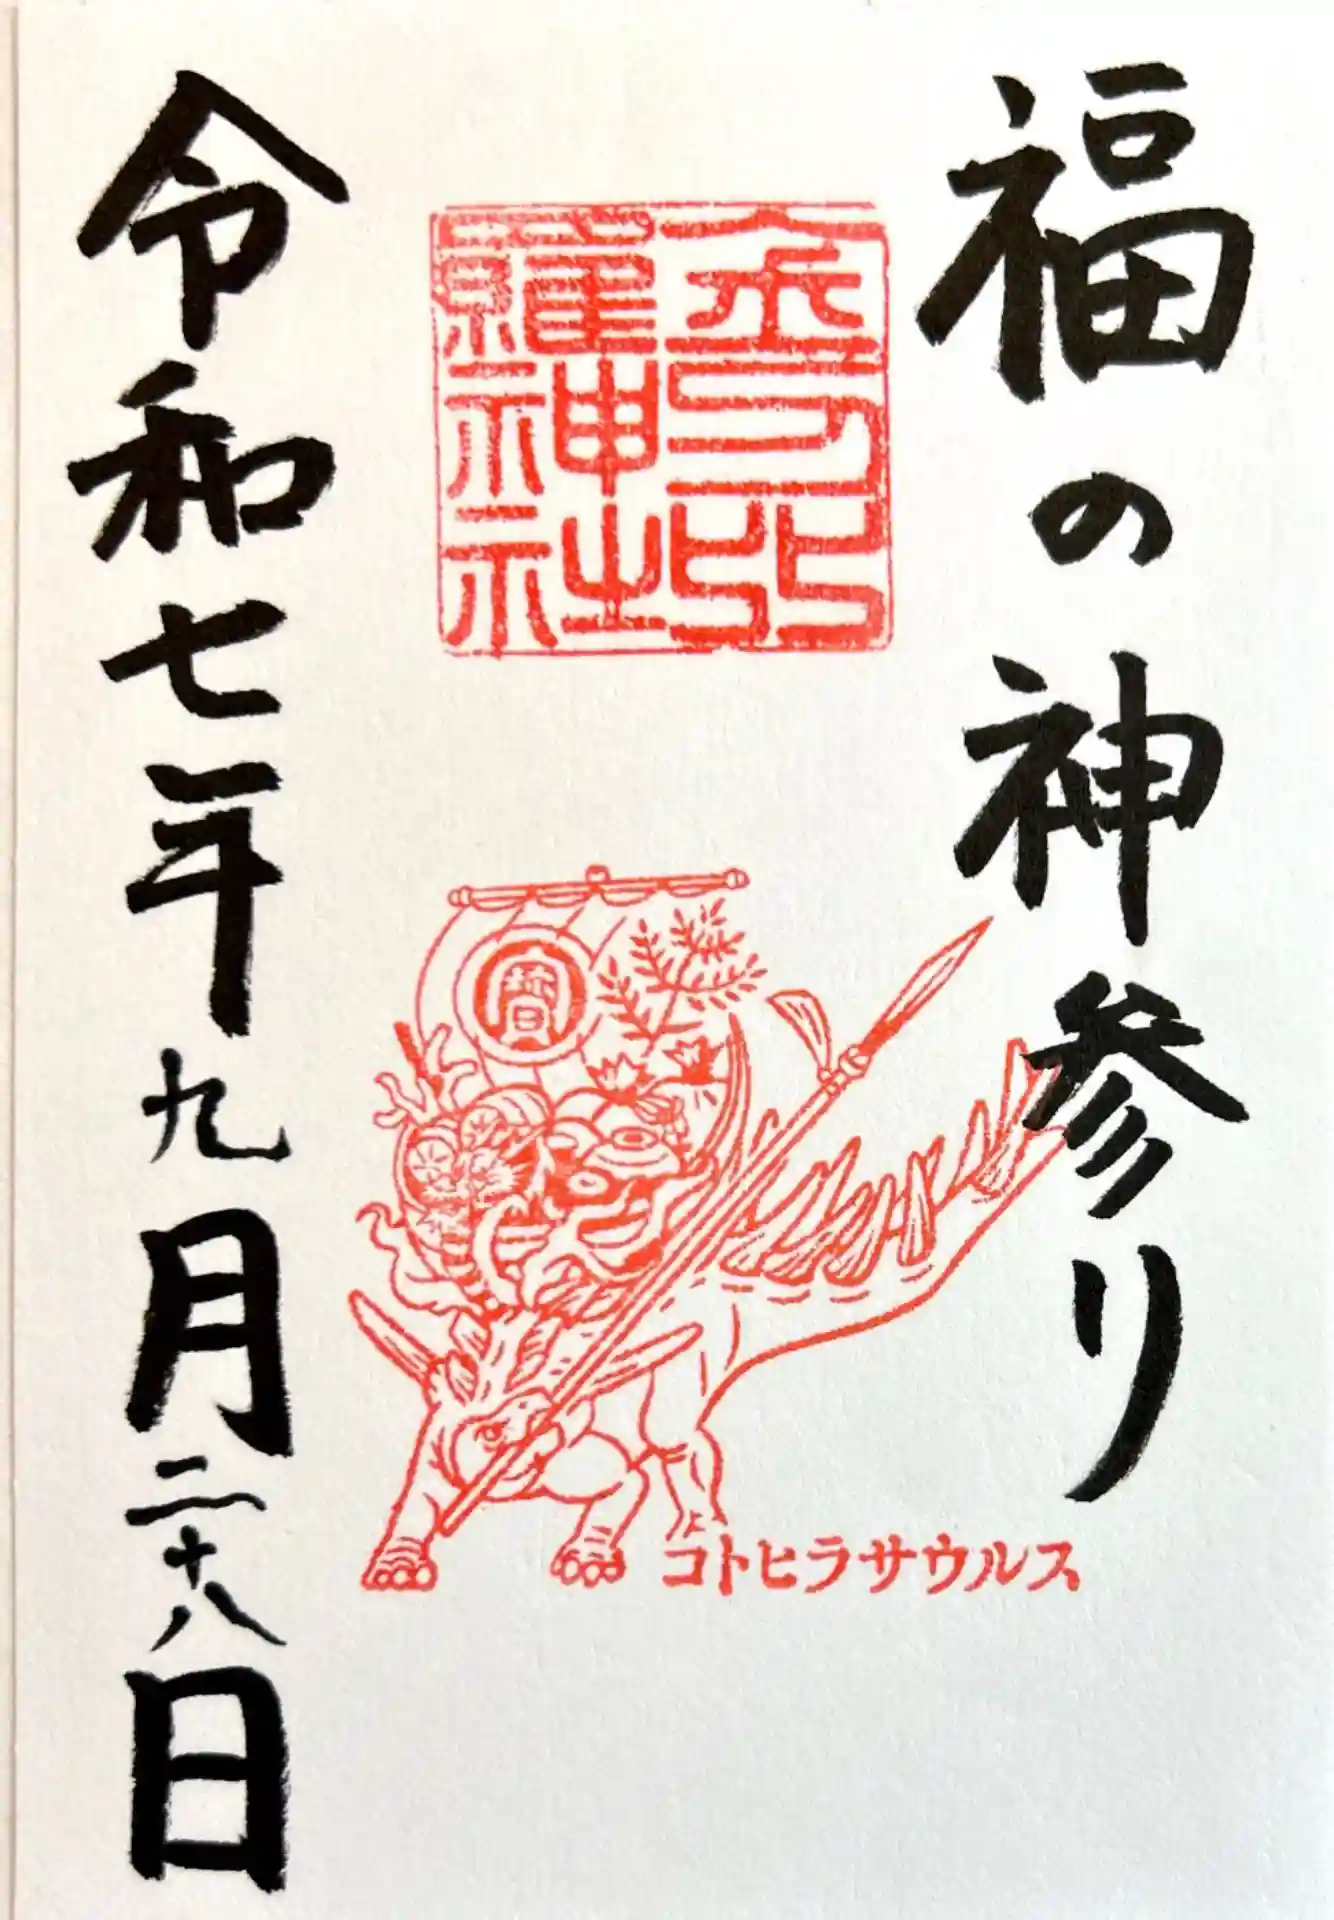 福の神参り
金刀比
羅神社
コトヒラサウルス
令和七年九月二十八日